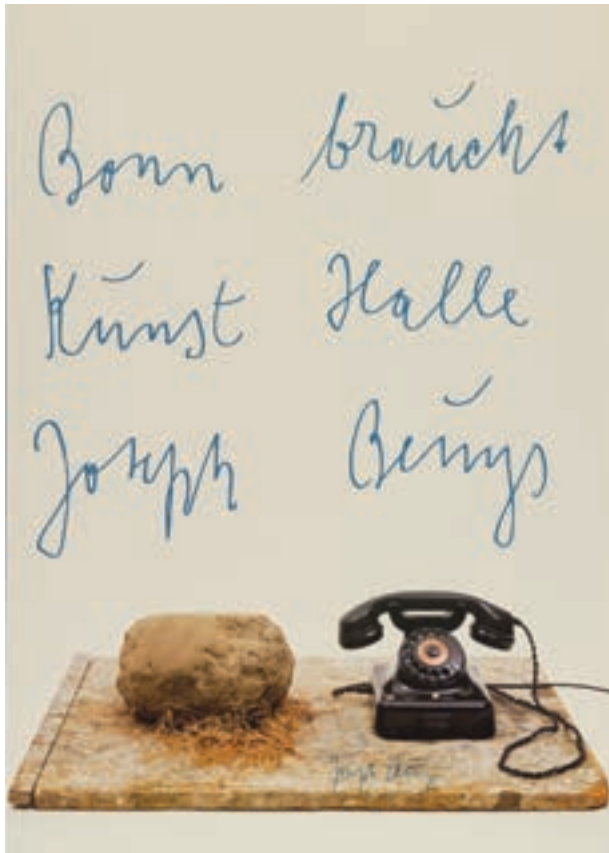 Bonn braucht
Kunst Halle
Joseph Beuys
Joseph